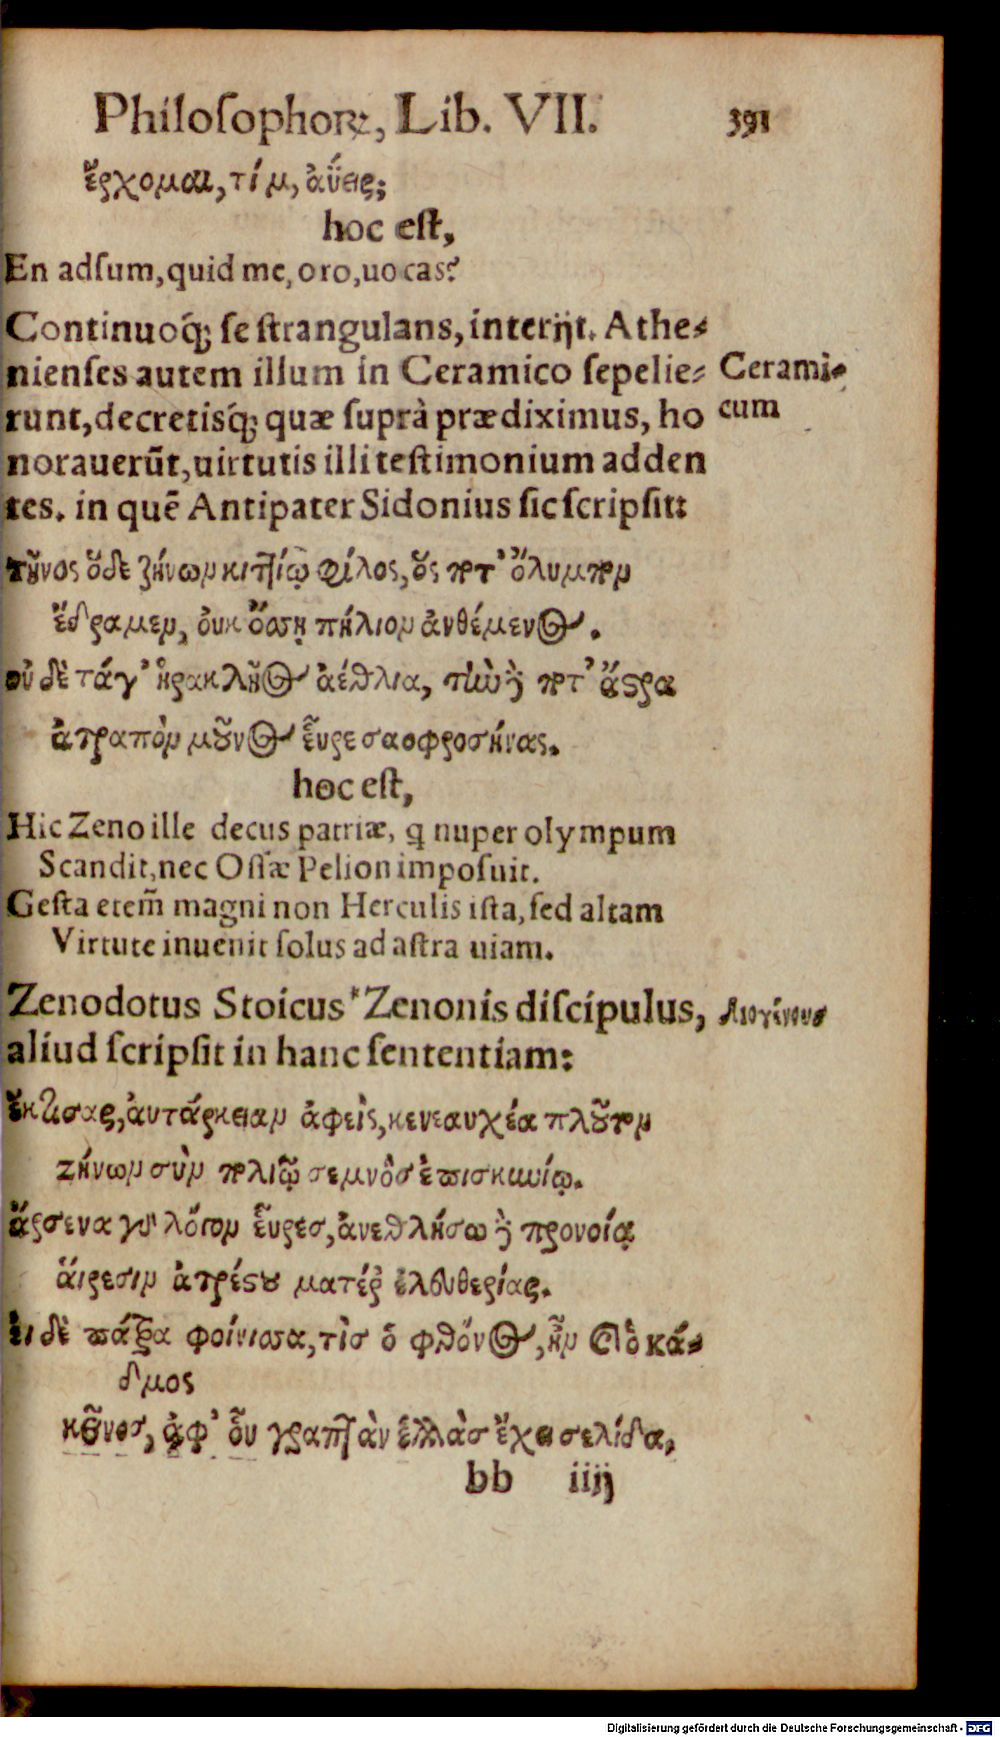 Philosophorꝝ, Lib. VII. 391
ἔρχομαι, τί μ, ἀΰεις;
hoc est,
En adsum, quid me, oro, uocas?
Continuoq́; se strangulans, interijt. Athe-
nienses autem illum in Ceramico sepelie-
Cerami-
cum
runt, decretisq́; quæ suprà prædiximus, ho
norauerūt, uirtutis illi testimonium adden
tes. in quē Antipater Sidonius sic scripsit:
τῆνος ὅδε ζήνων κιτιίῳ φίλος, ὅς ποτ' ὄλυμπον
ἔδραμεν, ὀυκ ὄσσῃ πήλιον ἀνθέμενος.
οὐ δὲ τάγ' ἡρακλῆος ἀέθλια, τὼ ὴ ποτ' ἄστρα
ἀτραπὸν μοῦνος εὗρε σαοφροσήνας.
hoc est,
Hic Zeno ille decus patriæ, q nuper olympum
Scandit, nec Ossæ Pelion imposuit.
Gesta etem̃ magni non Herculis ista, sed altam
Virtute inuenit solus ad astra uiam.
Zenodotus Stoicus * Zenonis discipulus,
Διογένους
aliud scripsit in hanc sententiam:
ἔκτισας, ἀυτάρκειαν ἀφεὶς, κενεαυχέα πλοῦτον
ζήνων σὺν πολιῷ σεμνὸσ ἐπισκυνίῳ.
ἄρσενα γὸ λόγον εὗρεσ, ἀνεθλήσω ὴ προνοίᾳ
ἅιρεσιν ἀτρέστου ματέρ' ἐλευθερίας.
ἐι δὲ πάτρα φοίνισσα, τὶσ ὁ φθόνος, ἦν καὶ ὁ κά-
δμος
κεῖνος, ἀφ' οὗ γραπτὰν ἑλλὰσ ἔχει σελίδα,
bb iiij
Digitalisierung gefördert durch die Deutsche Forschungsgemeinschaft - DFG